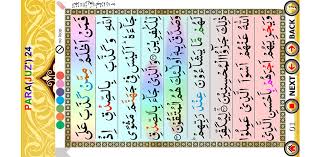 PARA(JUZ') 24
فَمَنْ اَظْلَمُ مِمَّنْ كَذَبَ عَلَى
اللّٰهِ وَ كَذَّبَ بِالصِّدْقِ اِذْ
جَآءَهٗ اَلَيْسَ فِيْ جَهَنَّمَ مَثْوًى
لِّلْكٰفِرِيْنَ وَالَّذِيْ جَآءَ بِالصِّدْقِ
وَ صَدَّقَ بِهٖٓ اُولٰٓئِكَ هُمُ الْمُتَّقُوْنَ
لَهُمْ مَّا يَشَآءُوْنَ عِنْدَ رَبِّهِمْ
ذٰلِكَ جَزٰٓؤُا الْمُحْسِنِيْنَ لِيُكَفِّرَ
اللّٰهُ عَنْهُمْ اَسْوَاَ الَّذِيْ عَمِلُوْا
وَيَجْزِيَهُمْ اَجْرَهُمْ بِاَحْسَنِ الَّذِيْ
NEXT
BACK